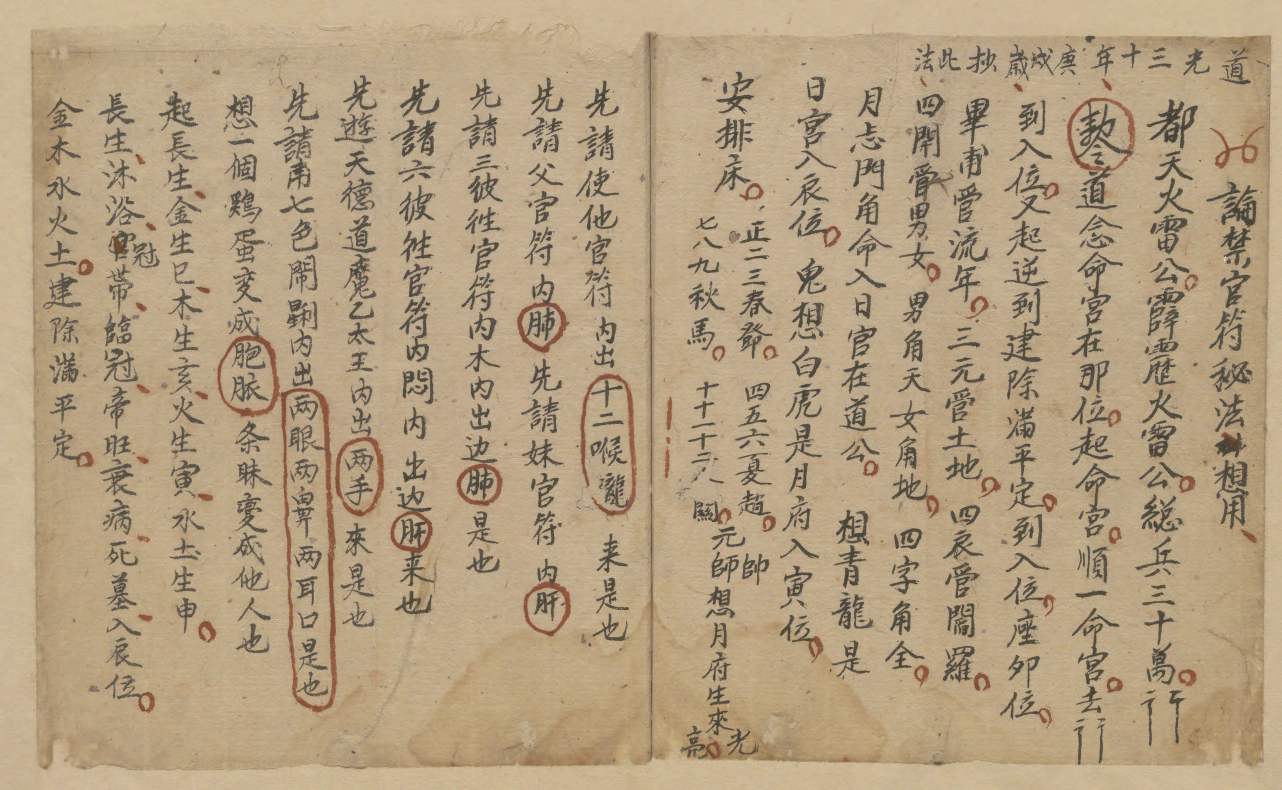 道光三十年庚戍歲抄此法
論禁官符秘法想用
都天火雷公霹靂火雷公総兵三十萬
道念命宮在那位起命宮順一命宮去
到入位又起逆到建除滿平定到入位座卯位
畢甫管流年三元管土地四哀管閻羅
四閑管男女男角天女角地四字角全
月忌門角命入日官在道公想青龍是
日宮入哀位鬼想白虎是月府入寅位
安排床正二三春鄧四五六夏趙帥
七八九秋馬十十一十二關元帥想月府生來光亮
先請使他官符内出十二喉嚨来是也
先請父官符内肺先請妹官符内肝
先請三彼徃官符内木内出边肺是也
先請六彼徃官符内悶内出边肝来也
先遊天德道魔乙太王内出两手來是也
先請甫七色閙内出两眼两鼻两耳口是也
想一個鷄蛋变成胞脈条昧變成他人也
起長生金生巳木生亥火生寅水土生申
長生沐浴冠帶臨冠帝旺衰病死墓入哀位
金木水火土建除滿平定